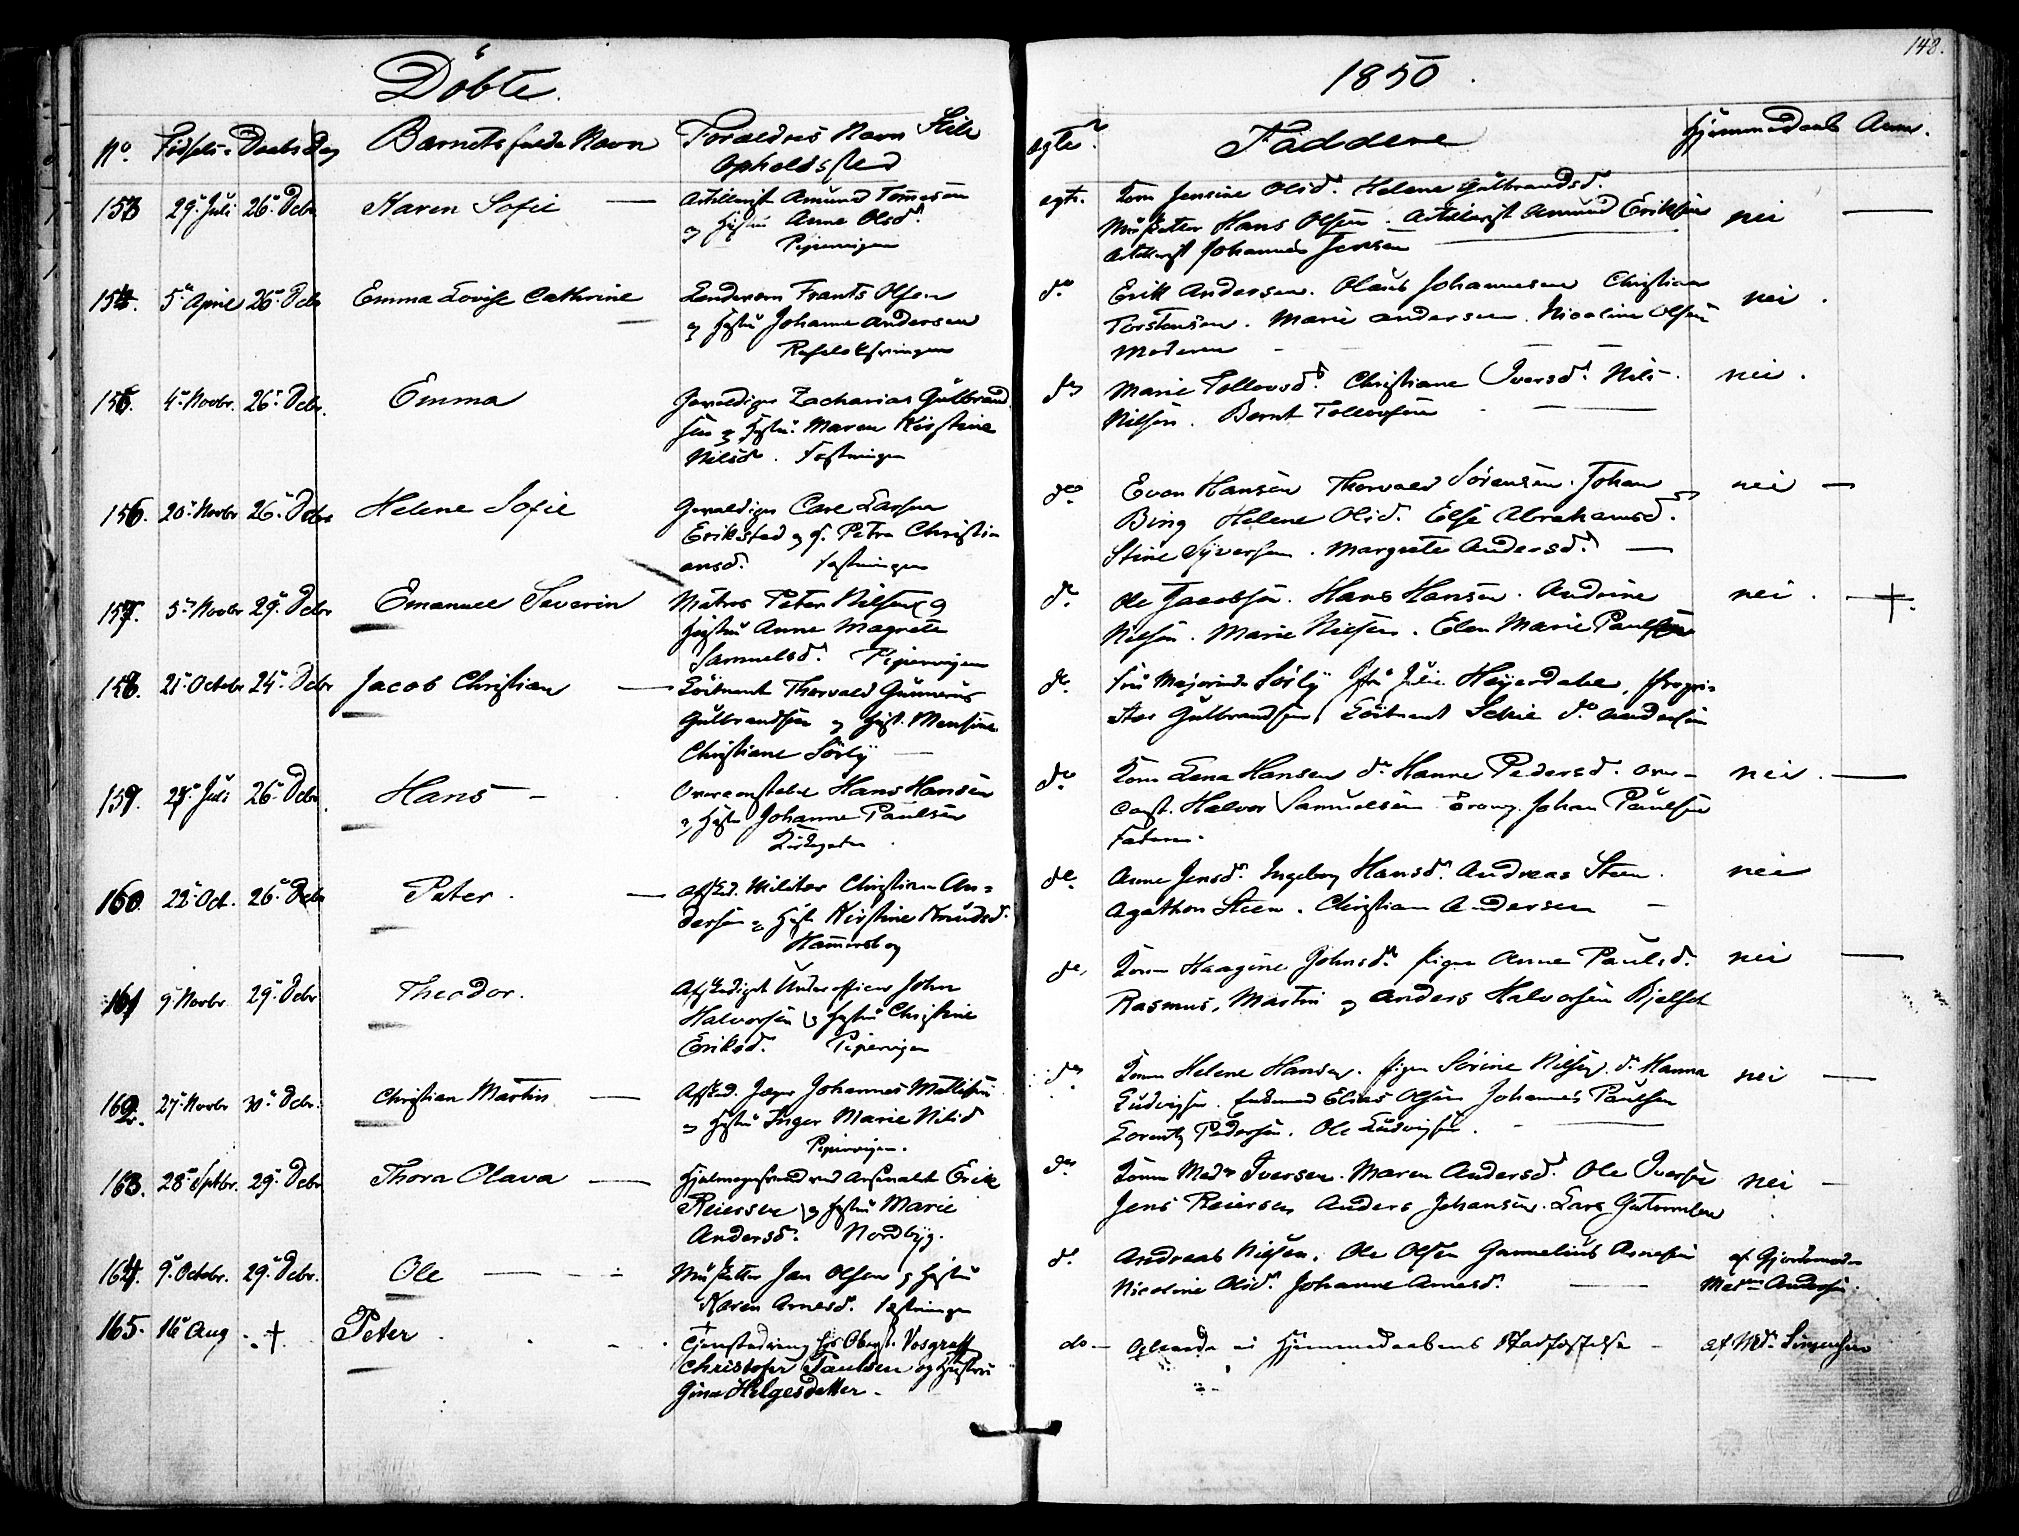 148.
Döbte. 1850.
No. Födsels- Daabs Dag Barnets fulde Navn Forældres Navn Stile ægte Faddere Hjemmedaab Anm.
Opholdssted
153 29 Juli 26 Debr Karen Sofie — Artillerist Amund Tomesen
og Hustru Anne Olsd.
Pipervigen
egte. Kone Jensine Olsd. Helene Gulbrandsd.
Musketer Hans Olsen. Artillerist Amund Eriksen nei —
Artillerist Johannes Jensen
154. 5 April 26 Debr Emma Lovise Cathrine Frants Olsen
og Hustru Johanne Andersen
do Erik Andersen. Olaus Johannesen Christian
Torstensen. Marie Andersen. Nicoline Olsen nei.
Moderen
155. 4 Novbr. 26 Debr. Emma Gevaldiger Zacharias Gulbrand
sen og Hustru Maren Kirstine
Nilsd. Fæstningen
do Marie Tollevsd. Christiane Iversd. Nils nei.
Nilsen. Bernt Tollevsen
156. 20 Novbr 26 Debr Helene Sofie Gevaldiger Carl Larsen
Erikstad og H. Petra Christi
ansd. Fæstningen
do Even Hansen Thorvald Sörensen. Johan nei —
Bing Helene Olsd. Else Abrahamsd.
Stine Syversen. Margrete Andersd. —
157. 5 Novbr 29 Debr Emanuel Severin Matros Peter Nilsen og
Hustru Anne Magrete
Samuelsd. Pipervigen
do Ole Jacobsen. Hans Hansen. Andrine nei. †
Nilsen. Marie Nilsen. Elen Marie Paulsen
158. 21 Octobr 24 Debr Jacob Christian — Löitnant Thorvald Gunerius
Gulbrandsen og Hust. Mensine
Christiane Sörly —
do Fru Majorinde Sörly Fru Julie Heyerdahl, Propri-
Gulbrandsen, Löitnant Do Andersen
159. Juli 26 Debr. Hans — Overconstabel Hans Hansen
og Hustru Johanne Paulsen
Kirkegaten
do Kone Lena Hansen do Hanne Pedersd. Over- nei. —
const. Halvor Samuelsen Johan Paulsen
Faderen.
160. 22 Oct. 26 Debr Peter. — Afsked. Militær Christian An-
dersen og Hustru Kirstine Knudsd.
Hammersborg
do. Anne Jensd. Ingeborg Hansd. Andreas Steen. nei
Agathon Steen. Christian Andersen —
161 9 Novbr 29 Debr Theodor. Afskediget Underofficer John
Halvorsen og Hustru Christine
Eriksd. Pipervigen
do. Kone Haagine Johnsd. Pigen Anne Paulsd. nei —
Rasmus, Martin og Anders Halvorsen Bjelset
162. 27 Novbr 30 Debr. Christian Martin — Afsked. Jæger Johannes Mattisen
og Hustru Inger Marie Nilsd
Pipervigen.
do Kone Helene Hansen. Pigen Serine Nilsen. do Hanna nei —
Ludvigsen. Elias Olsen Johannes Paulsen
Lorentz Pedersen. Ole Ludvigsen.
163. 28 Septbr. 29 Debr Thora Olava — ved Arsenalet Erik
Reiersen og Hustru Marie
Andersd. Nordbyg.
do Kone Iversen. Maren Andersd. Ole Iversen nei —
Jens Reiersen Anders Johansen. Lars Guttormsen
164. 9 Octobr. 29 Debr. Ole — Musketer Jan Olsen og Hustru
Karen Arnesd. Fæstningen
do. Andreas Nilsen. Ole Olsen Gunnelius Arnesen af Gjordemoder
Nicoline Olsd. Johanne Arnesd. — Mad. Andersen.
165. 16 Aug † Peter Tjenestedreng hos Oberst. Vosgraff
Christofer Paulsen og Hustru
Gina Helgesdatter.
do — Hjemmedaabens Stadfæstelse — af Md. Sörensen